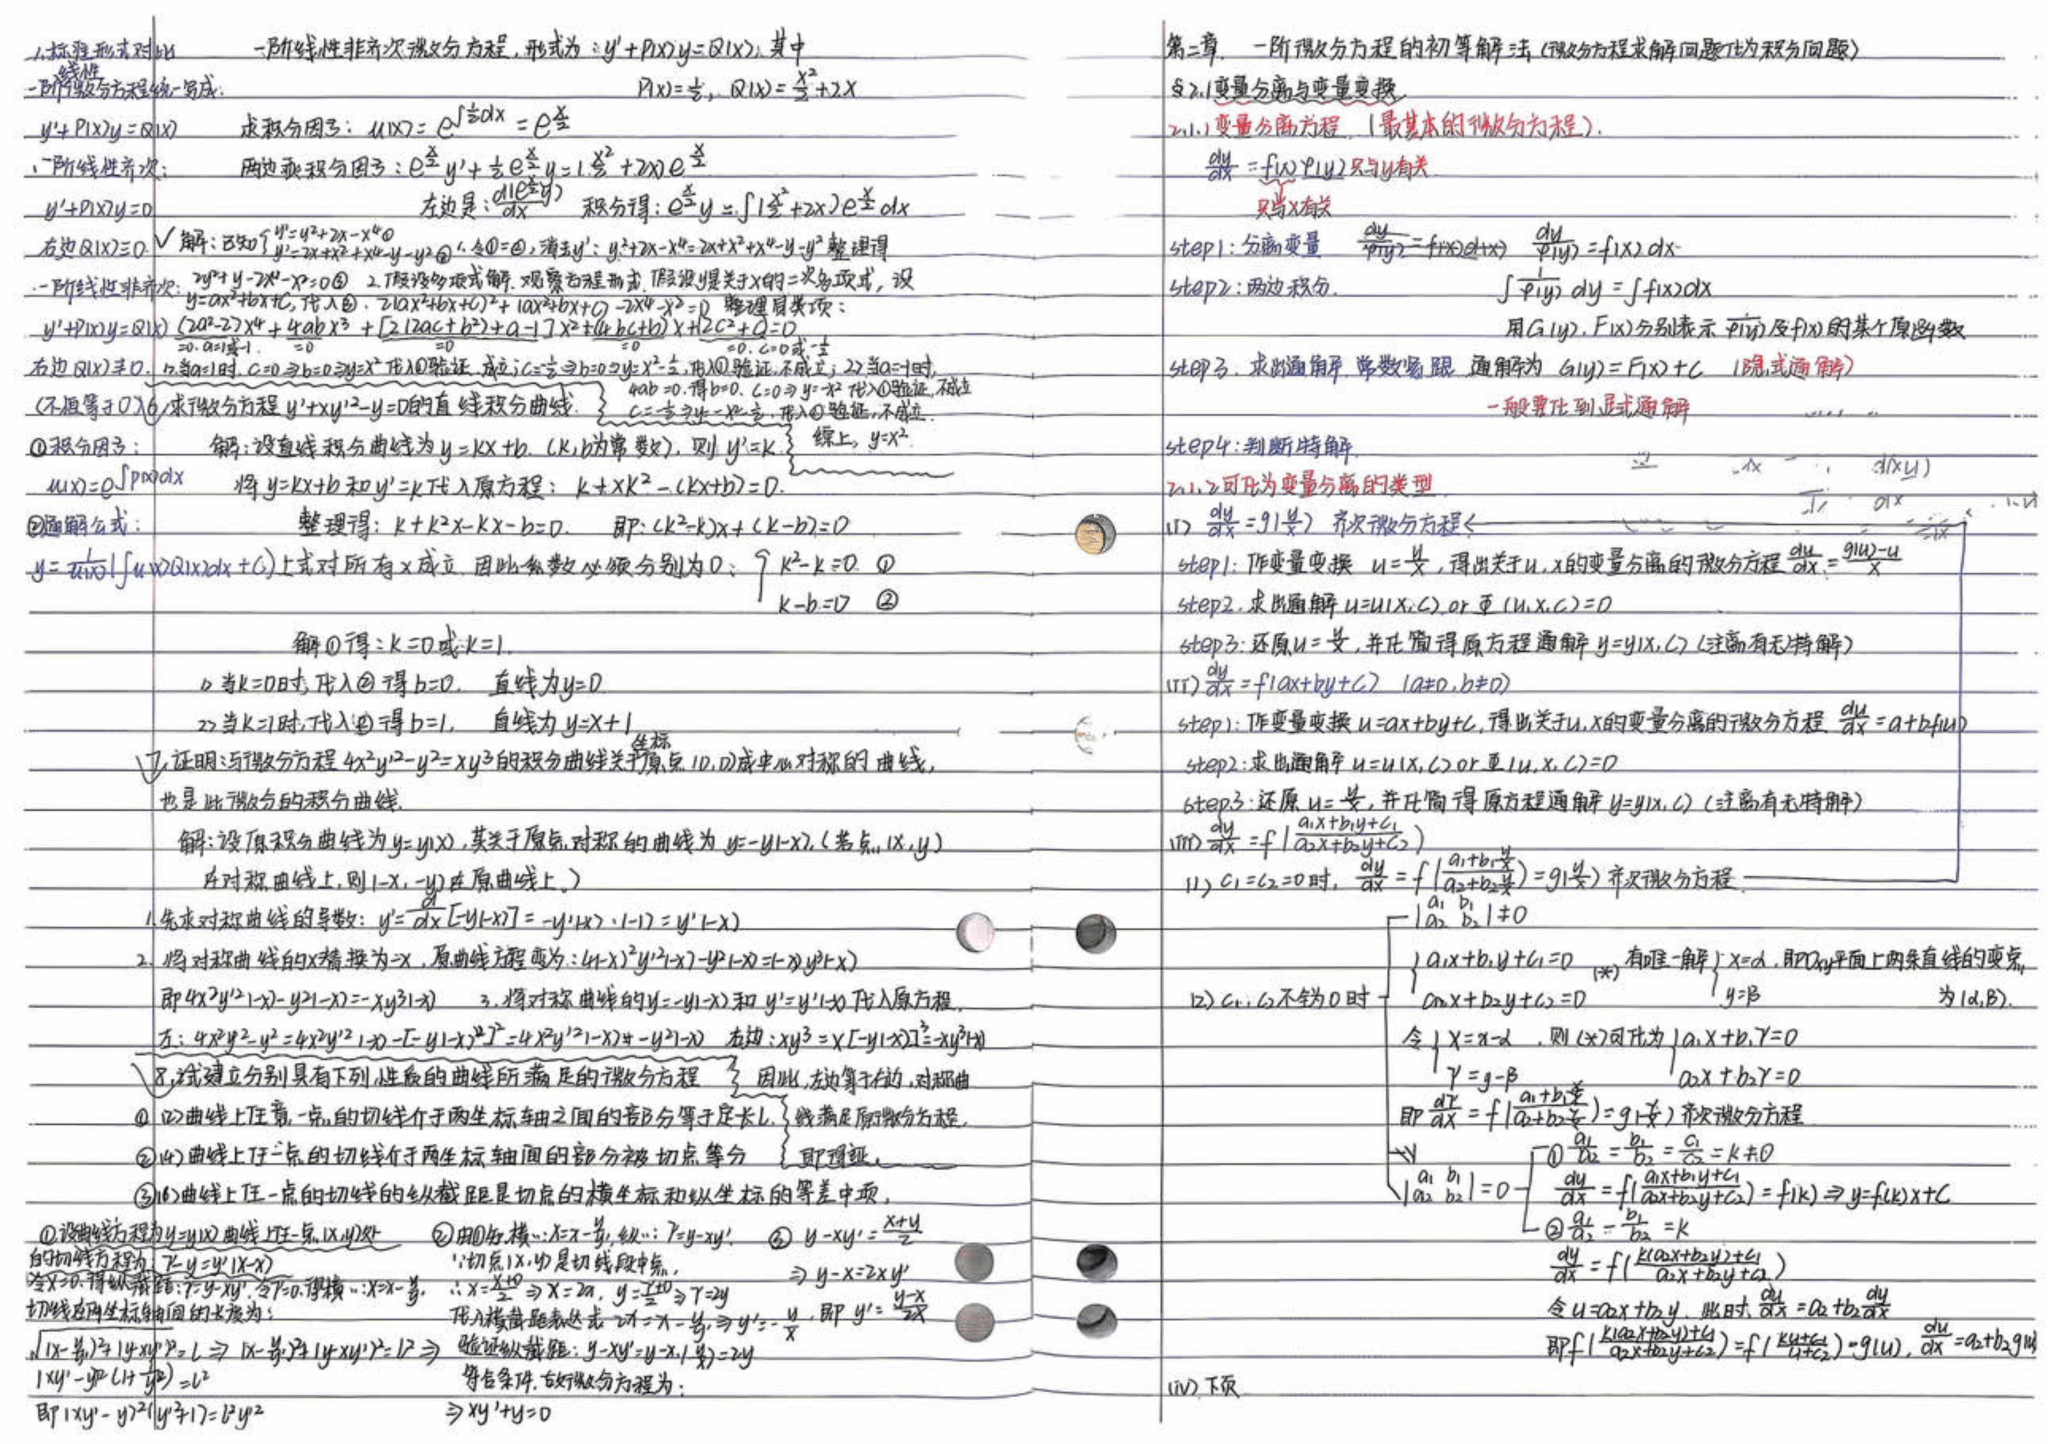 1.标准形式对比
一阶线性微分方程统一写成:
y'+P(x)y=Q(x)
一阶线性齐次:
y'+P(x)y=0
右边Q(x)≡0.
一阶线性非齐次:
y'+P(x)y=Q(x)
右边Q(x)≢0.
(不恒等于0)
①积分因子:
u(x)=e^∫p(x)dx
②通解公式:
y=1/u(x)(∫u(x)Q(x)dx+C)
一阶线性非齐次微分方程,形式为:y'+P(x)y=Q(x),其中
P(x)=1/2, Q(x)=x²/2+2x
求积分因子:u(x)=e^∫1/2dx=e^x/2
两边乘积分因子:e^x/2 y'+1/2 e^x/2 y=(x²/2+2x)e^x/2
左边是:d(e^x/2 y)/dx 积分得:e^x/2 y=∫(x²/2+2x)e^x/2 dx
解:已知{y'=y²+2x-x⁴① y'=2x+x²+x⁴-y-y²② 令①=②,消去y':y²+2x-x⁴=2x+x²+x⁴-y-y² 整理得
2y²+y-2x⁴-x²=0③ 2.假设多项式解.观察方程形式,假设y是关于x的二次多项式,设
y=ax²+bx+c,代入③.2(ax²+bx+c)²+(ax²+bx+c)-2x⁴-x²=0 整理同类项:
(2a²-2)x⁴+4abx³+[2(2ac+b²)+a-1]x²+(4bc+b)x+(2c²+c)=0
=0.a=1或-1. =0 =0 =0 =0.c=0或-1/2
1)当a=1时.c=0⇒b=0⇒y=x²代入①验证.成立;c=-1/2⇒b=0⇒y=x²-1/2,代入①验证.不成立;2)当a=-1时,
4ab=0.得b=0. c=0⇒y=-x²代入①验证,不成立
c=-1/2⇒y=-x²-1/2,代入①验证,不成立.
综上,y=x².
6.求微分方程y'+xy'²-y=0的直线积分曲线.
解:设直线积分曲线为y=kx+b.(k,b为常数),则y'=k.
将y=kx+b和y'=k代入原方程:k+xk²-(kx+b)=0.
整理得:k+k²x-kx-b=0. 即:(k²-k)x+(k-b)=0
上式对所有x成立.因此系数必须分别为0:{k²-k=0.①
k-b=0 ②
解①得:k=0或k=1.
1)当k=0时,代入②得b=0. 直线为y=0
2)当k=1时,代入②得b=1. 直线为y=x+1
7.证明:与微分方程4x²y'²-y²=xy³的积分曲线关于坐标原点(0,0)成中心对称的曲线,
也是此微分的积分曲线.
解:设原积分曲线为y=y(x),其关于原点对称的曲线为y=-y(-x),(若点(x,y)
在对称曲线上,则(-x,-y)在原曲线上.)
1.先求对称曲线的导数:y'=d/dx[-y(-x)]=-y'(-x)·(-1)=y'(-x)
2.将对称曲线的x替换为-x,原曲线方程变为:4(-x)²y'²(-x)-y²(-x)=(-x)y³(-x)
即4x²y'²(-x)-y²(-x)=-xy³(-x) 3.将对称曲线的y=-y(-x)和y'=y'(-x)代入原方程.
左:4x²y'²-y²=4x²y'²(-x)-[-y(-x)]²=4x²y'²(-x)-y²(-x) 右边:xy³=x[-y(-x)]³=-xy³(-x)
因此,左边等于右边,对称曲
线满足原微分方程,
即得证.
8.试建立分别具有下列性质的曲线所满足的微分方程
①(2)曲线上任意一点的切线介于两坐标轴之间的部分等于定长l.
②(4)曲线上任一点的切线介于两坐标轴间的部分被切点等分
③(6)曲线上任一点的切线的纵截距是切点的横坐标和纵坐标的等差中项.
①设曲线方程为y=y(x)曲线上任一点(x,y)处
的切线方程为:Y-y=y'(X-x)
令X=0.得纵截距:Y=y-xy'.令Y=0.得横…:X=x-y/y'.
切线在两坐标轴间的长度为:
√(x-y/y')²+(y-xy')²=l⇒(x-y/y')²+(y-xy')²=l²⇒
(xy'-y)²(1+1/y'²)=l²
即(xy'-y)²(y'²+1)=l²y'²
②由①知.横…:X=x-y/y',纵…:Y=y-xy'.
∵切点(x,y)是切线段中点,
∴x=X+0/2⇒X=2x, y=Y+0/2⇒Y=2y
代入横截距表达式 2x=x-y/y'⇒y'=-y/x.
验证纵截距:y-xy'=y-x·(-y/x)=2y
符合条件.故微分方程为:
⇒xy'+y=0
③ y-xy'=x+y/2
⇒y-x=2xy'
即y'=y-x/2x
第二章. 一阶微分方程的初等解法(微分方程求解问题化为积分问题)
§2.1变量分离与变量变换
2.1.1变量分离方程.(最基本的微分方程).
dy/dx=f(x)φ(y)只与y有关
只与x有关
step1:分离变量 dy/φ(y)=f(x)dx
step2:两边积分. ∫1/φ(y) dy=∫f(x)dx
用G(y),F(x)分别表示1/φ(y)及f(x)的某个原函数
step3.求出通解.常数紧跟 通解为G(y)=F(x)+C (隐式通解)
一般要化到显式通解
step4:判断特解.
2.1.2可化为变量分离的类型
(i) dy/dx=g(y/x) 齐次微分方程
step1:作变量变换 u=y/x,得出关于u,x的变量分离的微分方程du/dx=g(u)-u/x
step2.求出通解u=u(x,c) or Φ(u,x,c)=0
step3:还原u=y/x,并化简得原方程通解y=y(x,c)(注意有无特解)
(ii) dy/dx=f(ax+by+c) (a≠0,b≠0)
step1:作变量变换u=ax+by+c,得出关于u,x的变量分离的微分方程 du/dx=a+bf(u)
step2:求出通解u=u(x,c) or Φ(u,x,c)=0
step3:还原u=y/x,并化简得原方程通解y=y(x,c)(注意有无特解)
(iii) dy/dx=f(a₁x+b₁y+c₁/a₂x+b₂y+c₂)
(1)c₁=c₂=0时, dy/dx=f(a₁+b₁y/x/a₂+b₂y/x)=g(y/x)齐次微分方程
|a₁ b₁ a₂ b₂|≠0
(2)c₁,c₂不全为0时
{a₁x+b₁y+c₁=0 a₂x+b₂y+c₂=0 (*) 有唯一解{x=α y=β.即Oxy平面上两条直线的交点
为(α,β).
令{X=x-α Y=y-β,则(*)可化为{a₁X+b₁Y=0 a₂X+b₂Y=0
即dY/dX=f(a₁+b₁Y/X/a₂+b₂Y/X)=g(Y/X)齐次微分方程
|a₁ b₁ a₂ b₂|=0
①a₁/a₂=b₁/b₂=c₁/c₂=k≠0
dy/dx=f(a₁x+b₁y+c₁/a₂x+b₂y+c₂)=f(k)⇒y=f(k)x+C
②a₁/a₂=b₁/b₂=k
dy/dx=f(k(a₂x+b₂y)+c₁/a₂x+b₂y+c₂)
令u=a₂x+b₂y.此时du/dx=a₂+b₂dy/dx
即f(k(a₂x+b₂y)+c₁/a₂x+b₂y+c₂)=f(ku+c₁/u+c₂)=g(u), du/dx=a₂+b₂g(u)
(iv).下页